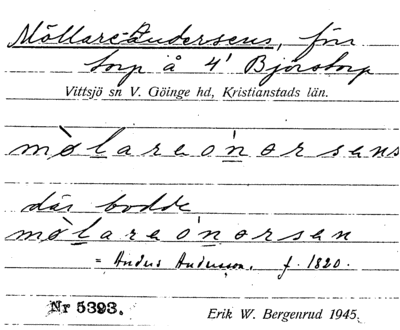 Möllare-Andersens, för
torp å 4¹ Björstorp
Vittsjö sn V. Göinge hd, Kristianstads län.
mòlareónorsens
där bodde
mòlareónorsen
= Anders Andersson. f. 1820.
Nr 5393.
Erik W. Bergenrud 1945.